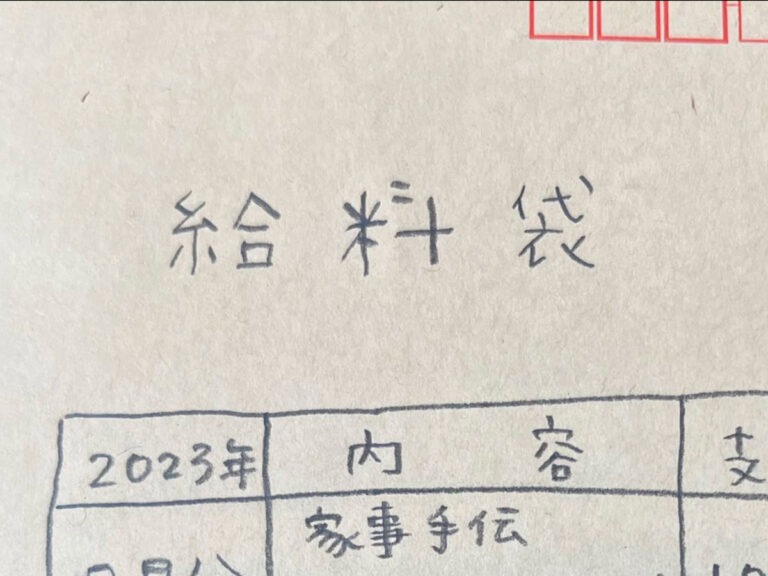 給料袋
2023年 内容 支
家事手伝
月分